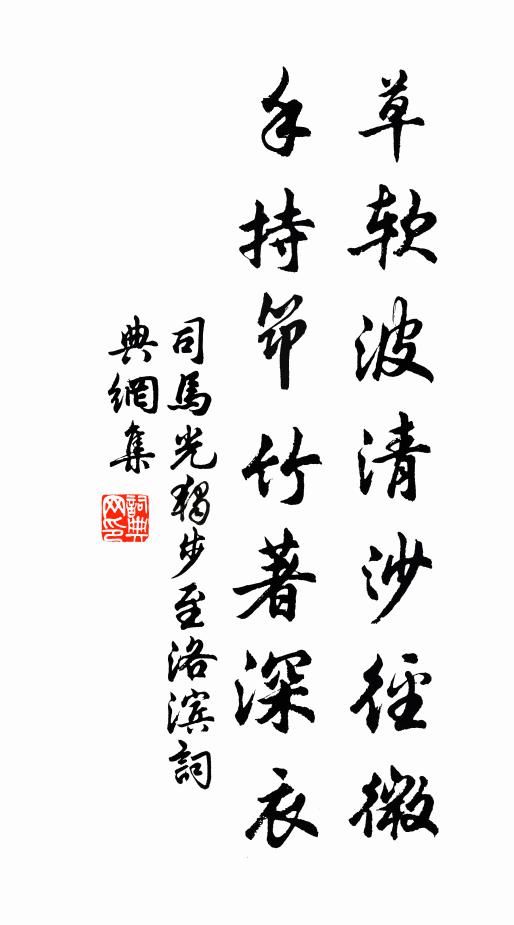 草软波清沙径微
手持筇竹著深衣
司馬光獨步至洛滨詞
典網集
詞典網印